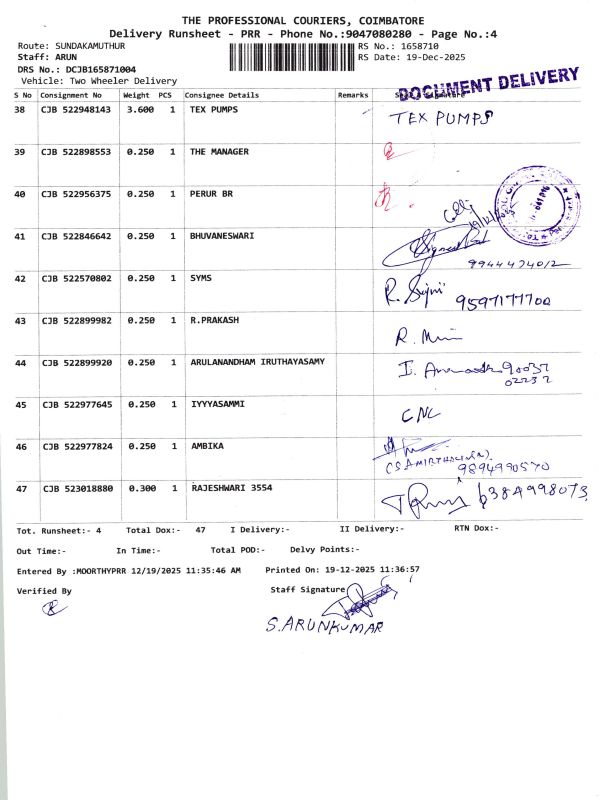 THE PROFESSIONAL COURIERS, COIMBATORE
Delivery Runsheet - PRR - Phone No.:9047080280 - Page No.:4
Route: SUNDAKAMUTHUR RS No.: 1658710
Staff: ARUN RS Date: 19-Dec-2025
DRS No.: DCJB165871004
Vehicle: Two Wheeler Delivery
DOCUMENT DELIVERY
S No Consignment No Weight PCS Consignee Details Remarks
38 CJB 522948143 3.600 1 TEX PUMPS TEX PUMPS
39 CJB 522898553 0.250 1 THE MANAGER
40 CJB 522956375 0.250 1 PERUR BR
41 CJB 522846642 0.250 1 BHUVANESWARI
42 CJB 522570802 0.250 1 SYMS 9597177700
43 CJB 522899982 0.250 1 R.PRAKASH
44 CJB 522899920 0.250 1 ARULANANDHAM IRUTHAYASAMY 90037
02232
45 CJB 522977645 0.250 1 IYYYASAMMI CNC
46 CJB 522977824 0.250 1 AMBIKA
9894990570
47 CJB 523018880 0.300 1 RAJESHWARI 3554
Tot. Runsheet:- 4 Total Dox:- 47 I Delivery:- II Delivery:- RTN Dox:-
Out Time:- In Time:- Total POD:- Delvy Points:-
Entered By :MOORTHYPRR 12/19/2025 11:35:46 AM Printed On: 19-12-2025 11:36:57
Verified By Staff Signature
S.ARUNKUMAR